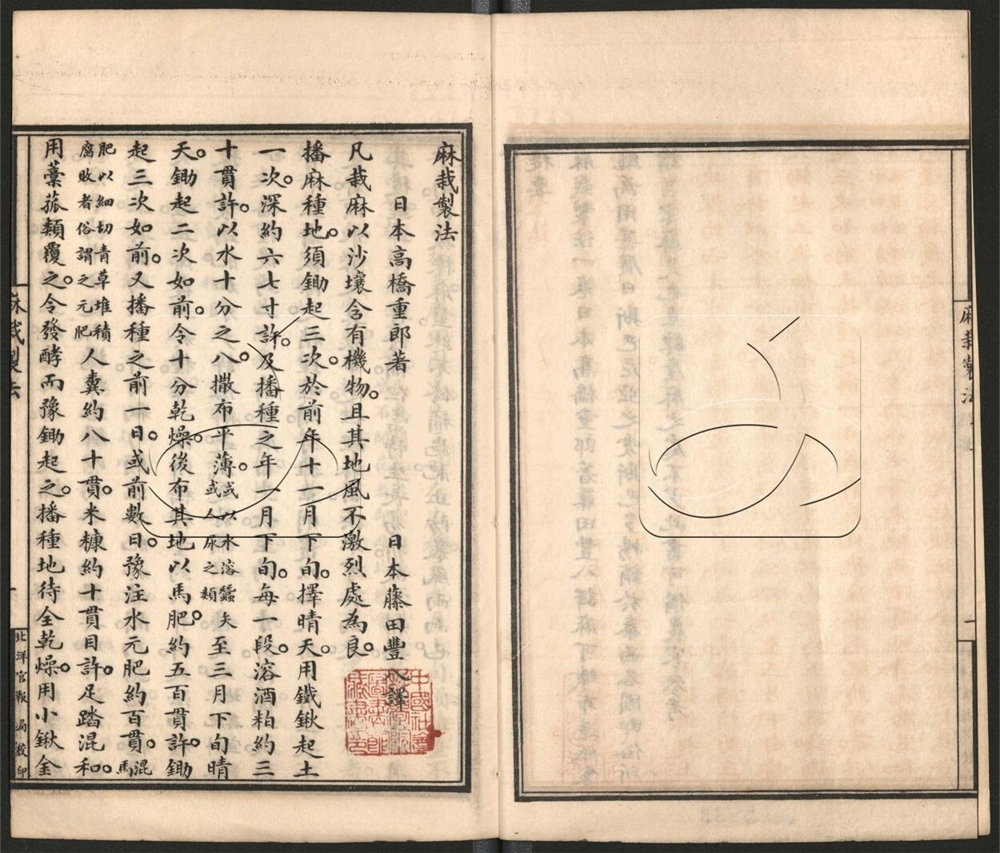 麻栽製法
日本高橋重郎著　日本藤田豐八譯
凡栽麻以沙壤含有機物。且其地風不激烈處為良。
播麻種地。須鋤起三次。於前年十一月下旬。擇晴天。用鐵鍬起土
一次。深約六七寸許。及播種之年一月下旬。每一段。溶酒粕約三
十貫許。以水十分之八。撒布平薄。或以水溶蠶矢或人尿之類至三月下旬。晴
天。鋤起二次如前。令十分乾燥後。布其地以馬肥約五百貫許。鋤
起三次如前。又播種之前一日。或前數日。豫注水元肥約百貫。混馬
肥以細切青草堆積腐敗者俗謂之元肥人糞約八十貫。米糠約十貫目許。足踏混和。
用藁菰類覆之。令發酵而豫鋤起之。播種地待全乾燥。用小鍬全
麻栽製法
一
北洋官報局校印
麻栽製法
一